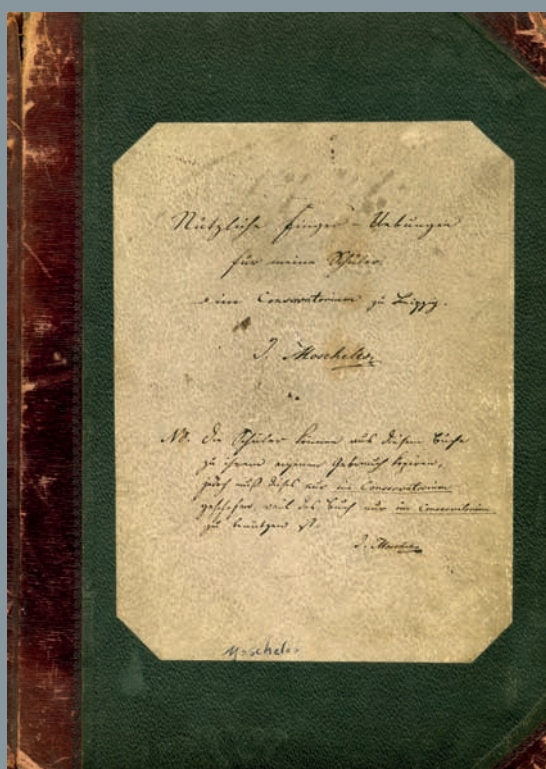 Nützliche Finger-Uebungen
für meine Schüler
im Conservatorium zu Leipzig.
I. Moscheles
NB. Die Schüler können aus diesem Buche
zu ihrem eigenen Gebrauch kopiren,
jedoch muß dieß nur im Conservatorium
geschehen, weil das Buch nur im Conservatorium
zu benützen ist.
I. Moscheles
Moscheles